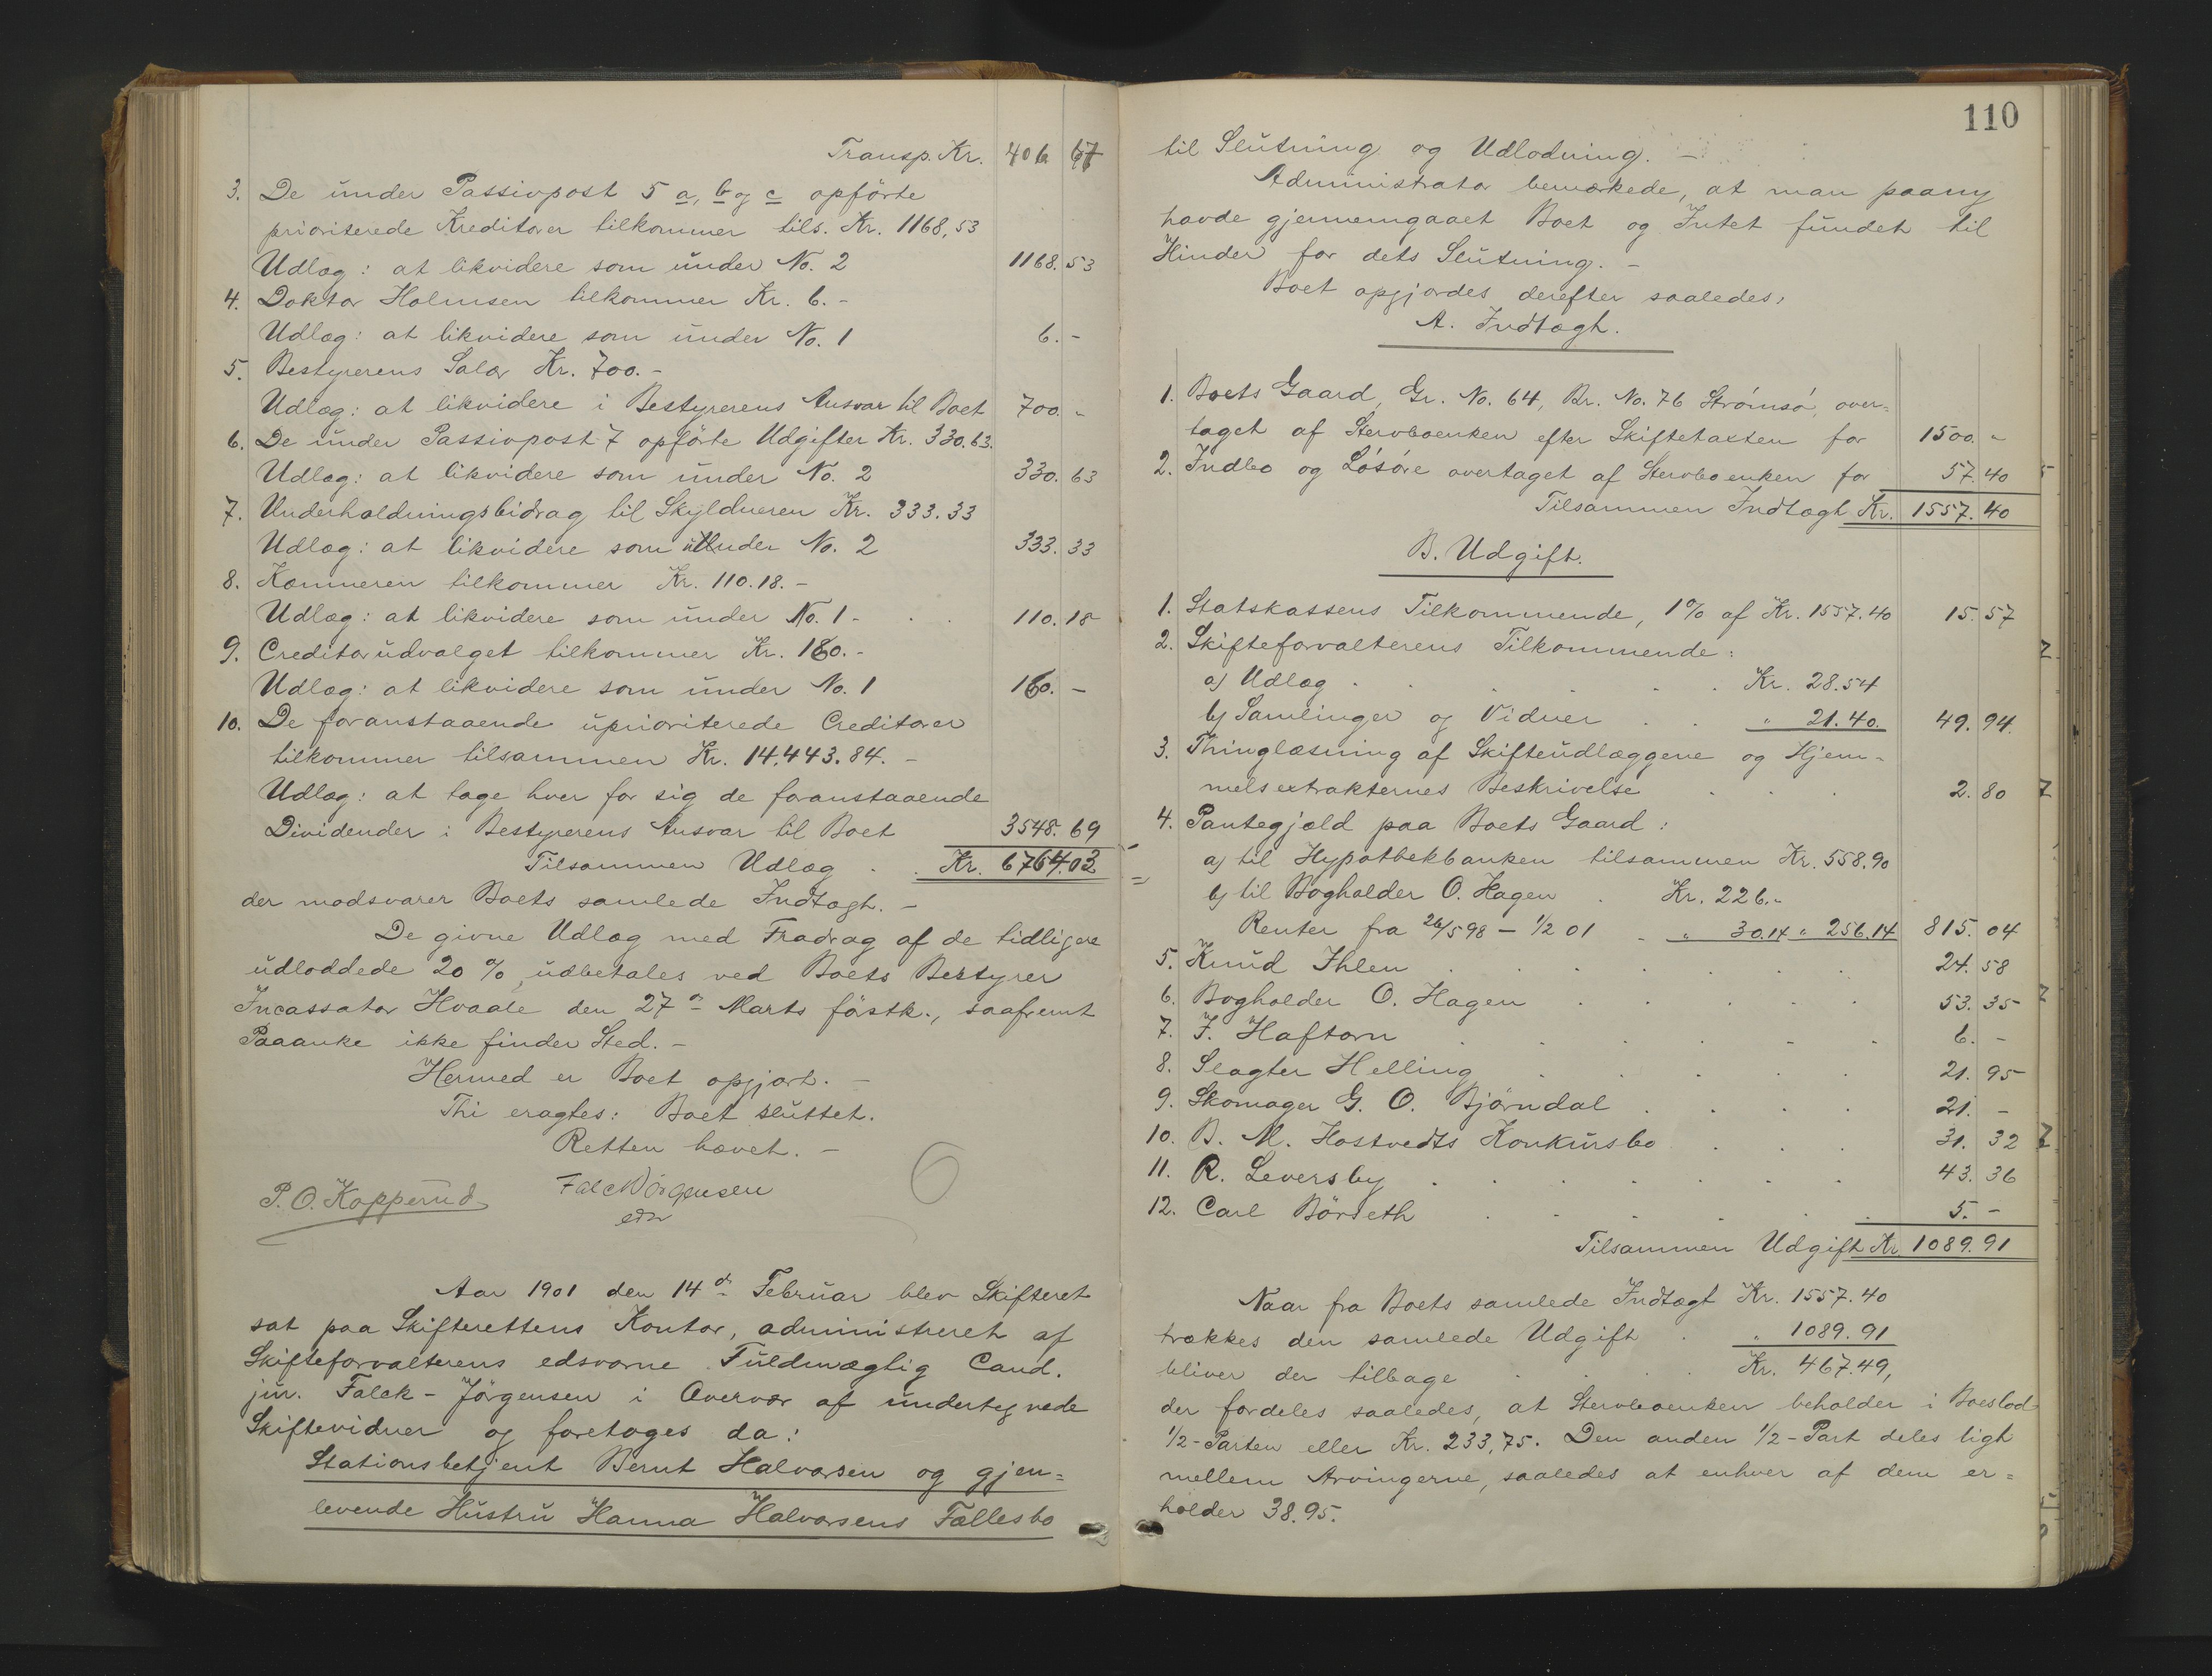 Transp. Kr. 406 67
3. De under Passivpost 5 a, b og c opförte
prioriterede Kreditorer tilkommer tils. Kr. 1168,53
Udlæg: at likvidere som under No. 2 1168.53
4. Doktor Holmsen tilkommer Kr. 6.-
Udlæg: at likvidere som under No. 1 6.-
5. Bestyrerens Salær Kr. 700.-
Udlæg: at likvidere i Bestyrerens Ansvar til Boet 700.-
6. De under Passivpost 7 opförte Udgifter Kr. 330.63.
Udlæg: at likvidere som under No. 2 330.63
7. Underholdningsbidrag til Skyldneren Kr. 333.33
Udlæg: at likvidere som under No. 2 333.33
8. Kæmneren tilkommer Kr. 110.18.-
Udlæg: at likvidere som under No. 1 - . . 110.18
9. Creditorudvalget tilkommer Kr. 160.-
Udlæg: at likvidere som under No. 1 160.-
10. De foranstaaende uprioriterede Creditorer
tilkommer tilsammen Kr. 14,443.84.-
Udlæg: at tage hver for sig de foranstaaende
Dividender i Bestyrerens Ansvar til Boet 3548.69
Tilsammen Udlæg . . Kr. 6764.03
der modsvarer Boets samlede Indtægt.-
De givne Udlæg med Fradrag af de tidligere
udloddede 20 %, udbetales ved Boets Bestyrer
Incassator Hvaale den 27de Marts förstk., saafremt
Paaanke ikke finder Sted.-
Hermed er Boet opgjort.-
Thi eragtes: Boet sluttet.
Retten hævet.-
P. O. Kopperud Falck Jörgensen
edsv
Aar 1901 den 14de Februar blev Skifteret
sat paa Skifterettens Kontor, administreret af
Skifteforvalterens edsvorne Fuldmægtig Cand.
jur. Falck-Jörgensen i Overvær af undertegnede
Skiftevidner og foretoges da:
Stationsbetjent Bernt Halvorsen og gjen=
levende Hustru Hanna Halvorsens Fællesbo
110
til Slutning og Udlodning.-
Administrator bemærkede, at man paany
havde gjennemgaaet Boet og Intet fundet til
Hinder for dets Slutning.-
Boet opgjordes derefter saaledes,
A. Indtægt.
1. Boets Gaard, Gr. No. 64, Br. No. 76 Strömsö, over=
taget af Stervboenken efter Skiftetaxten for 1500.-
2. Indbo og Lösöre overtaget af Stervboenken for 57.40
Tilsammen Indtægt Kr. 1557.40
B. Udgift.
1. Statskassens Tilkommende, 1% af Kr. 1557.40 15.57
2. Skifteforvalterens Tilkommende:
a) Udlæg . . . . . Kr. 28.54
b) Samlinger og Vidner . . " 21.40. 49.94.
3. Thinglæsning af Skifteudlæggene og Hjem-
melsextrakternes Beskrivelse . . . 2.80
4. Pantegjæld paa Boets Gaard:
a) til Hypothekbanken tilsammen Kr. 558.90
b) til Bogholder O. Hagen . Kr. 226.-
Renter fra 26/5 98 - 1/2 01 - " 30.14 " 256.14 815.04
5. Knud Ihlen . . . . . . 24.58
6. Bogholder O. Hagen . . . . . 53.35
7. F. Haftorn . . . . - . 6.-
8. Slagter Helling . . . . . 21.95
9. Skomager G. O. Björndal . . . . 21.-
10. B. M. Hostvedts Konkursbo . . . 31.32
11. R. Leversby . . . . . . 43.36
12. Carl Börseth . . . . . 5.-
Tilsammen Udgift Kr. 1089.91
Naar fra Boets samlede Indtægt Kr. 1557.40
trækkes den samlede Udgift . " 1089.91
bliver der tilbage . . . Kr. 467.49,
der fordeles saaledes, at Stervboenken beholder i Boeslod
1/2-Parten eller Kr. 233,75. Den anden 1/2-Part deles ligt
mellem Arvingerne, saaledes at enhver af dem er=
holder 38.95.